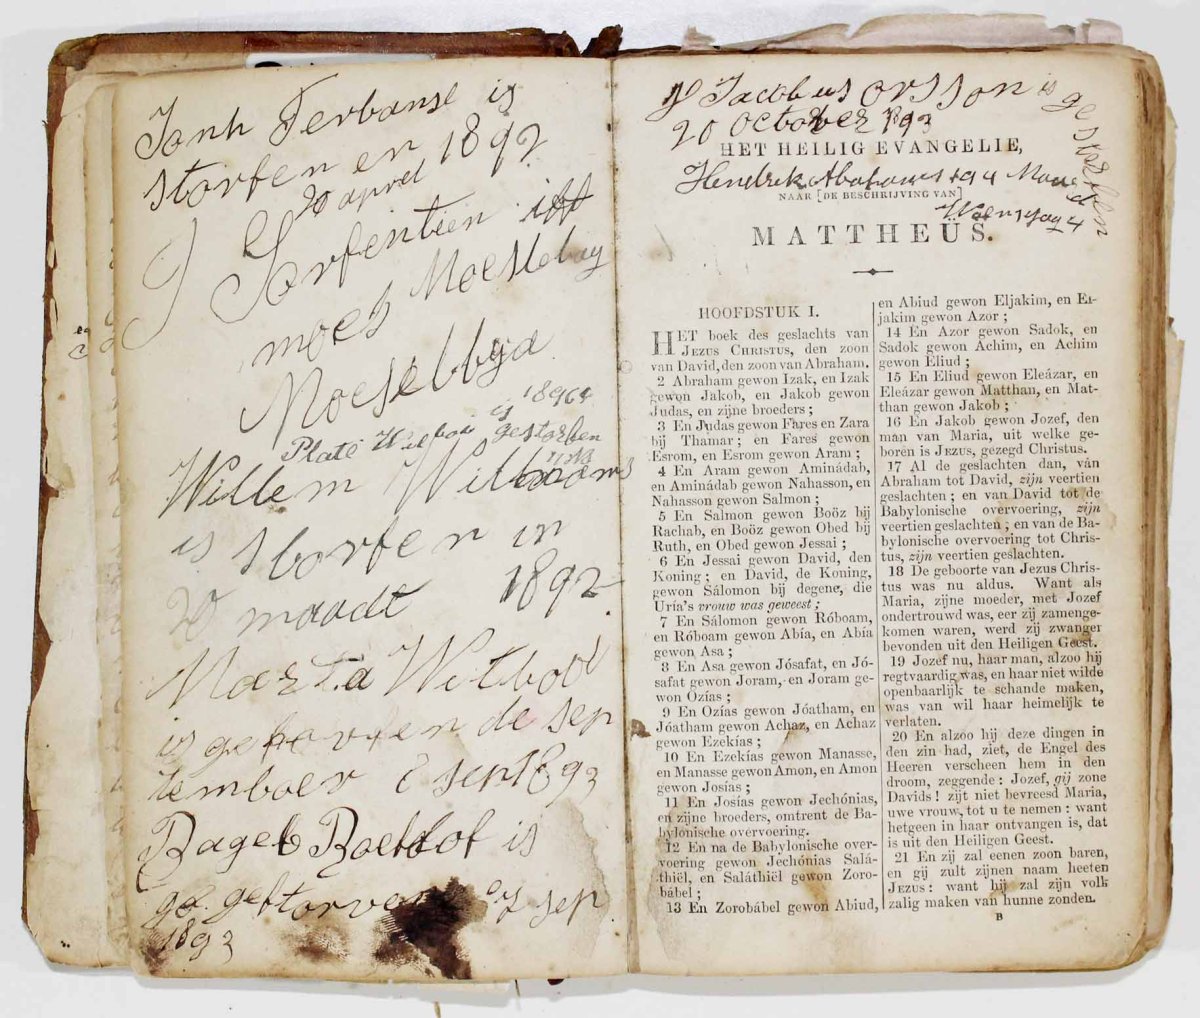 Janh Terbanse is
storfen en 1892
20 aprel
J Sorfentien isst
moes Moestebay
Moeselbbyd
1896
Plate Witboo is gestorben
Willem Witbooms
is storfen in
20 maadt 1892
Marta Witbooi
is gehorfen de sep
temboer 2 sept 1893
Ragel Roelof is
ge geftorven 07 sep
1893
Jacobus orsson is gestorfen
20 October 1893
HET HEILIG EVANGELIE,
Hendrek Abahams 194
NAAR [DE BESCHRIJVING VAN]
Woensdag 4
MATTHEÜS.
HOOFDSTUK I.
HET boek des geslachts van
JEZUS CHRISTUS, den zoon
van David, den zoon van Abraham.
2 Abraham gewon Izak, en Izak
gewon Jakob, en Jakob gewon
Judas, en zijne broeders;
3 En Judas gewon Fares en Zara
bij Thamar; en Fares gewon
Esrom, en Esrom gewon Aram;
4 En Aram gewon Aminádab,
en Aminádab gewon Nahasson, en
Nahasson gewon Salmon;
5 En Salmon gewon Boöz bij
Rachab, en Boöz gewon Obed bij
Ruth, en Obed gewon Jessai;
6 En Jessai gewon David, den
Koning; en David, de Koning,
gewon Sálomon bij degene, die
Uría's vrouw was geweest;
7 En Sálomon gewon Róboam,
en Róboam gewon Abía, en Abía
gewon Asa;
8 En Asa gewon Jósafat, en Jó-
safat gewon Joram, en Joram ge-
won Ozías;
9 En Ozías gewon Jóatham, en
Jóatham gewon Achaz, en Achaz
gewon Ezekías;
10 En Ezekías gewon Manasse,
en Manasse gewon Amon, en Amon
gewon Josías;
11 En Josías gewon Jechónias,
en zijne broeders, omtrent de Ba-
bylonische overvoering.
12 En na de Babylonische over-
voering gewon Jechónias Salá-
thiël, en Saláthiël gewon Zoro-
bábel;
13 En Zorobábel gewon Abiud,
en Abiud gewon Eljakim, en El-
jakim gewon Azor;
14 En Azor gewon Sadok, en
Sadok gewon Achim, en Achim
gewon Eliud;
15 En Eliud gewon Eleázar, en
Eleázar gewon Matthan, en Mat-
than gewon Jakob;
16 En Jakob gewon Jozef, den
man van Maria, uit welke ge-
boren is JEZUS, gezegd Christus.
17 Al de geslachten dan, ván
Abraham tot David, zijn veertien
geslachten; en van David tot de
Babylonische overvoering, zijn
veertien geslachten; en van de Ba-
bylonische overvoering tot Chris-
tus, zijn veertien geslachten.
18 De geboorte van Jezus Chris-
tus was nu aldus. Want als
Maria, zijne moeder, met Jozef
ondertrouwd was, eer zij zamenge-
komen waren, werd zij zwanger
bevonden uit den Heiligen Geest.
19 Jozef nu, haar man, alzoo hij
regtvaardig was, en haar niet wilde
openbaarlijk te schande maken,
was van wil haar heimelijk te
verlaten.
20 En alzoo hij deze dingen in
den zin had, ziet, de Engel des
Heeren verscheen hem in den
droom, zeggende: Jozef, gij zone
Davids! zijt niet bevreesd Maria,
uwe vrouw, tot u te nemen: want
hetgeen in haar ontvangen is, dat
is uit den Heiligen Geest.
21 En zij zal eenen zoon baren,
en gij zult zijnen naam heeten
JEZUS: want hij zal zijn volk
zalig maken van hunne zonden.
B